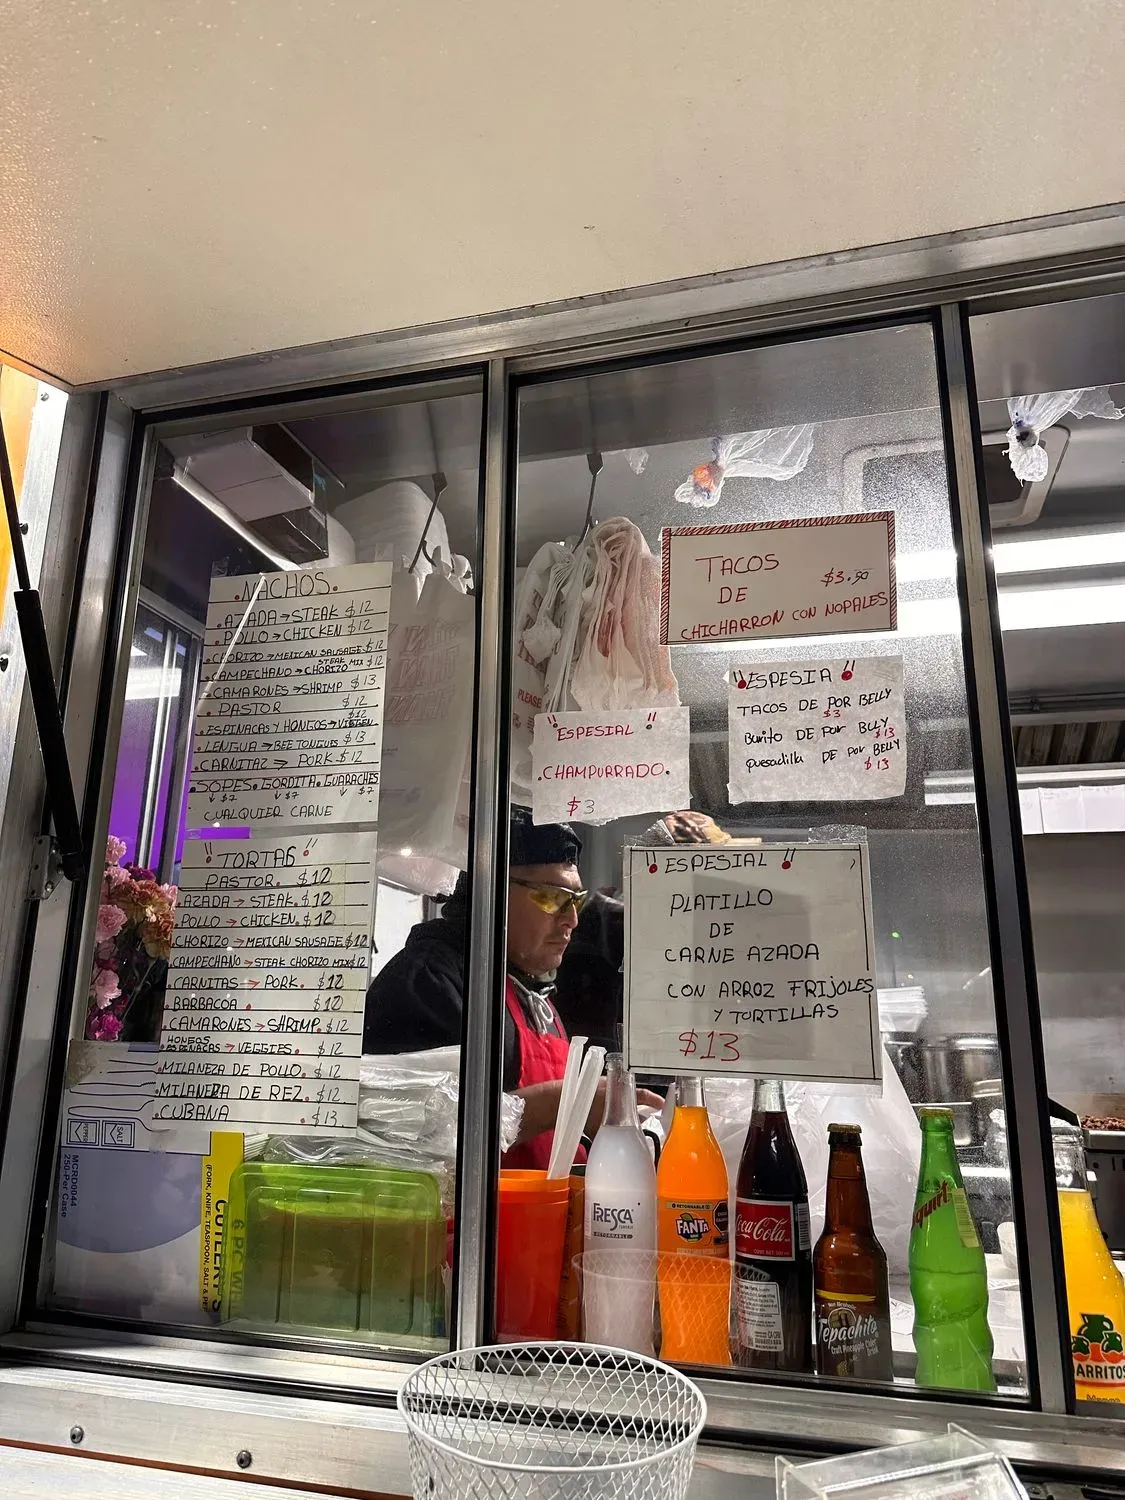 .NACHOS.
.AZADA→STEAK $12
.POLLO→CHICKEN $12
.CHORIZO→MEXICAN SAUSAGE $12
.CAMPECHANO→STEAK CHORIZO MIX $12
.CAMARONES→SHRIMP $13
.PASTOR $12
.ESPINACAS Y HONGOS→ $12
.LENGUA→BEE TONGUES $13
.CARNITAZ→PORK $12
.SOPES. GORDITA. GUARACHES
↓ $7 ↓ $7 ↓ $7
CUALQUIER CARNE
"TORTAS"
PASTOR. $12
.AZADA→STEAK. $12
.POLLO→CHICKEN. $12
.CHORIZO→MEXICAN SAUSAGE $12
.CAMPECHANO→STEAK CHORIZO MIX $12
.CARNITAS→PORK. $12
.BARBACOA. $12
.CAMARONES→SHRIMP. $12
HONGOS
ESPINACAS→VEGGIES. $12
.MILANEZA DE POLLO. $12
.MILANEZA DE REZ. $12
.CUBANA $13
TACOS
DE $3.90
CHICHARRON CON NOPALES
!!ESPESIA!!
TACOS DE POR BELLY
$3
Burito DE Por BLLY
$13
quesadilla DE por BELLY
$13
"ESPESIAL"
.CHAMPURRADO.
$3
!!ESPESIAL!!
PLATILLO
DE
CARNE AZADA
CON ARROZ FRIJOLES
Y TORTILLAS
$13
PLEASE
SALT
MCRD0044
250-Per Case
6 PC
CUTLERY
(FORK, KNIFE, TEASPOON, SALT &
FRESCA
RETORNABLE
FANTA
Coca-Cola
Tepachito
Craft Pineapple Cider
Drink
Squirt
JARRITOS